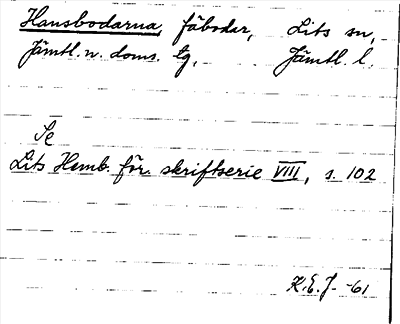 Hansbodarna, fäbodar, Lits sn,
Jämtl. n. doms. tg, Jämtl. l.
Se
Lits Hemb. för. skriftserie VIII, s. 102
K.E.J. -61